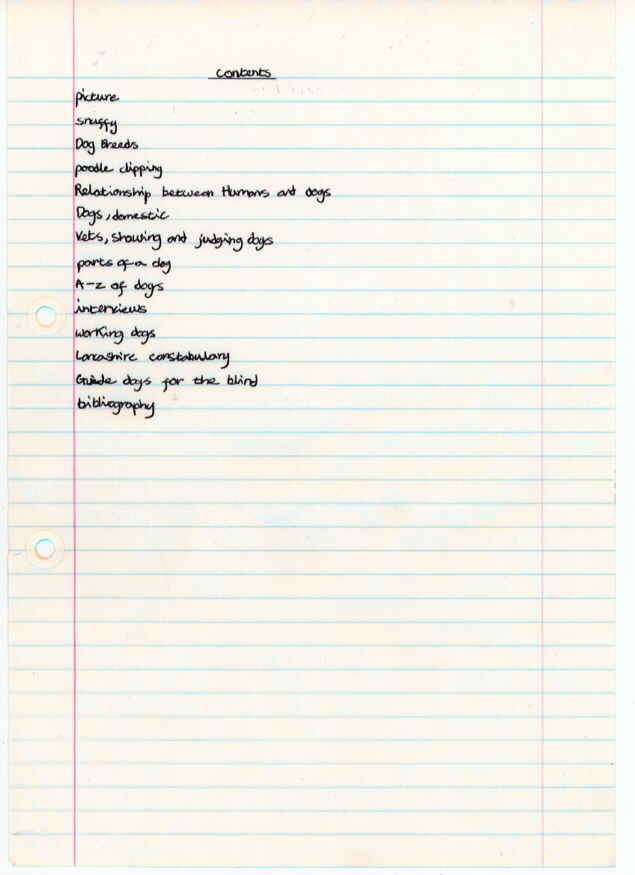 Contents
picture
snuffy
Dog Breeds
poodle clipping
Relationship between Humans and Dogs
Dogs, domestic
Vets, showing and judging dogs
parts of a dog
A-Z of dogs
interviews
working dogs
Lancashire constabulary
Guide dogs for the blind
bibliography